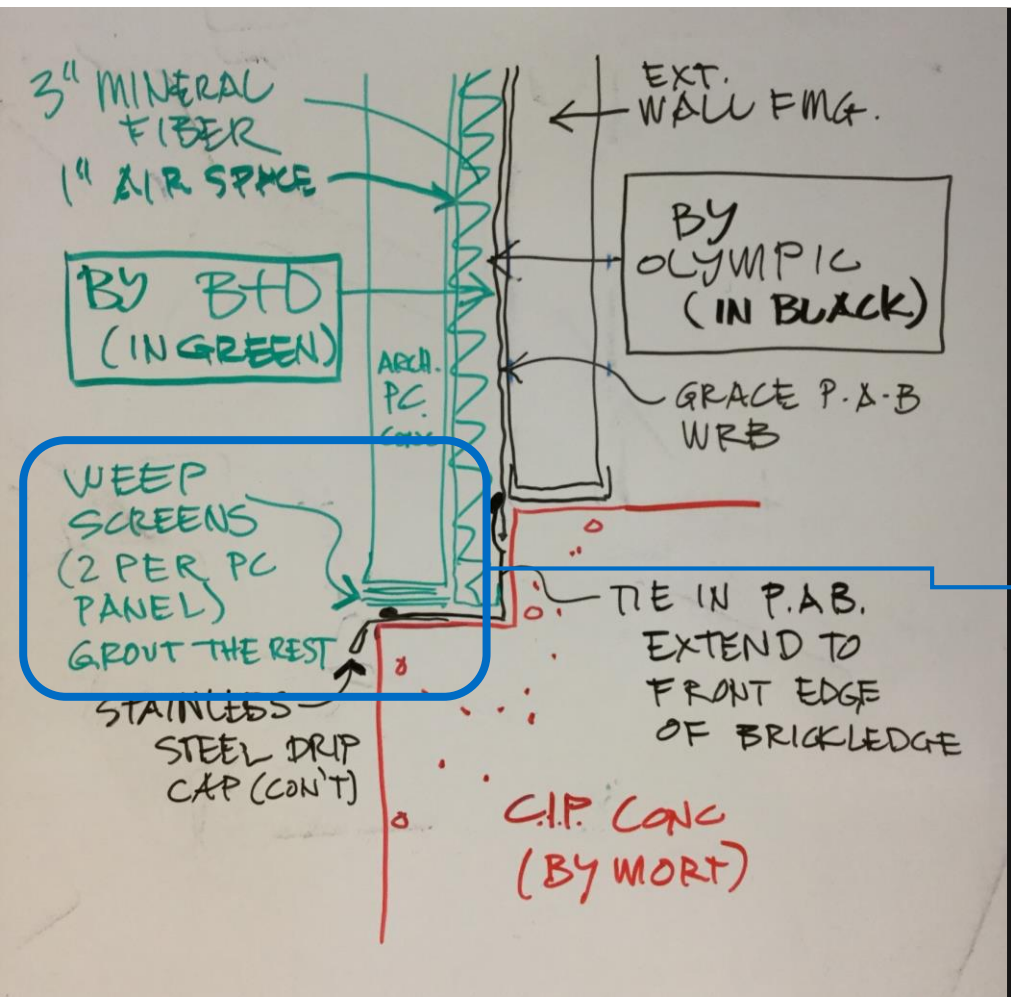 3" MINERAL
FIBER
1" AIR SPACE
BY B+D
(IN GREEN)
ARCH.
PC.
CONC
WEEP
SCREENS
(2 PER PC
PANEL)
GROUT THE REST
STAINLESS
STEEL DRIP
CAP (CON'T)
EXT.
WALL FMG.
BY
OLYMPIC
(IN BLACK)
GRACE P.A.B
WRB
TIE IN P.A.B.
EXTEND TO
FRONT EDGE
OF BRICKLEDGE
C.I.P. CONC
(BY MORT)